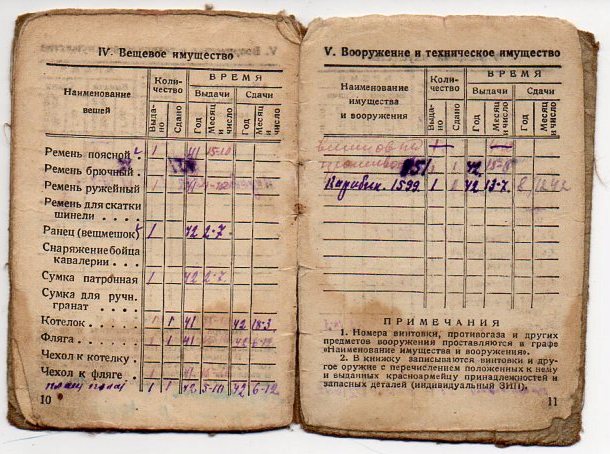 IV. Вещевое имущество
Наименование вещей
Коли-
чество
ВРЕМЯ
Выдачи
Сдачи
Выда-
но
Сдано
Год
Месяц
и число
Год
Месяц
и число
Ремень поясной 1 41 15-10
Ремень брючный
Ремень ружейный 1 41
Ремень для скатки
шинели . . . .
Ранец (вещмешок) 1 42 2-7
Снаряжение бойца
кавалерии . . . .
Сумка патронная 1 42 2-7
Сумка для ручн.
гранат . . . . .
Котелок . . . . 1 1 41 42 18-3
Фляга . . . . . 1 1 41 42
Чехол к котелку .
Чехол к фляге . . 1 41
1 1 42 5-10 42 6-12
10
V. Вооружение и техническое имущество
Наименование
имущества
и вооружения
Коли-
чество
ВРЕМЯ
Выдачи
Сдачи
Выда-
но
Сдано
Год
Месяц
и число
Год
Месяц
и число
винтовка 1
противогаз 1 1 42
Карабин. 1599 1 42 13-7 8
ПРИМЕЧАНИЯ
1. Номера винтовки, противогаза и других
предметов вооружения проставляются в графе
«Наименование имущества и вооружения».
2. В книжку записываются винтовки и дру-
гое оружие с перечислением положенных к нему
и выданных красноармейцу принадлежностей и
запасных деталей (индивидуальный ЗИП).
11